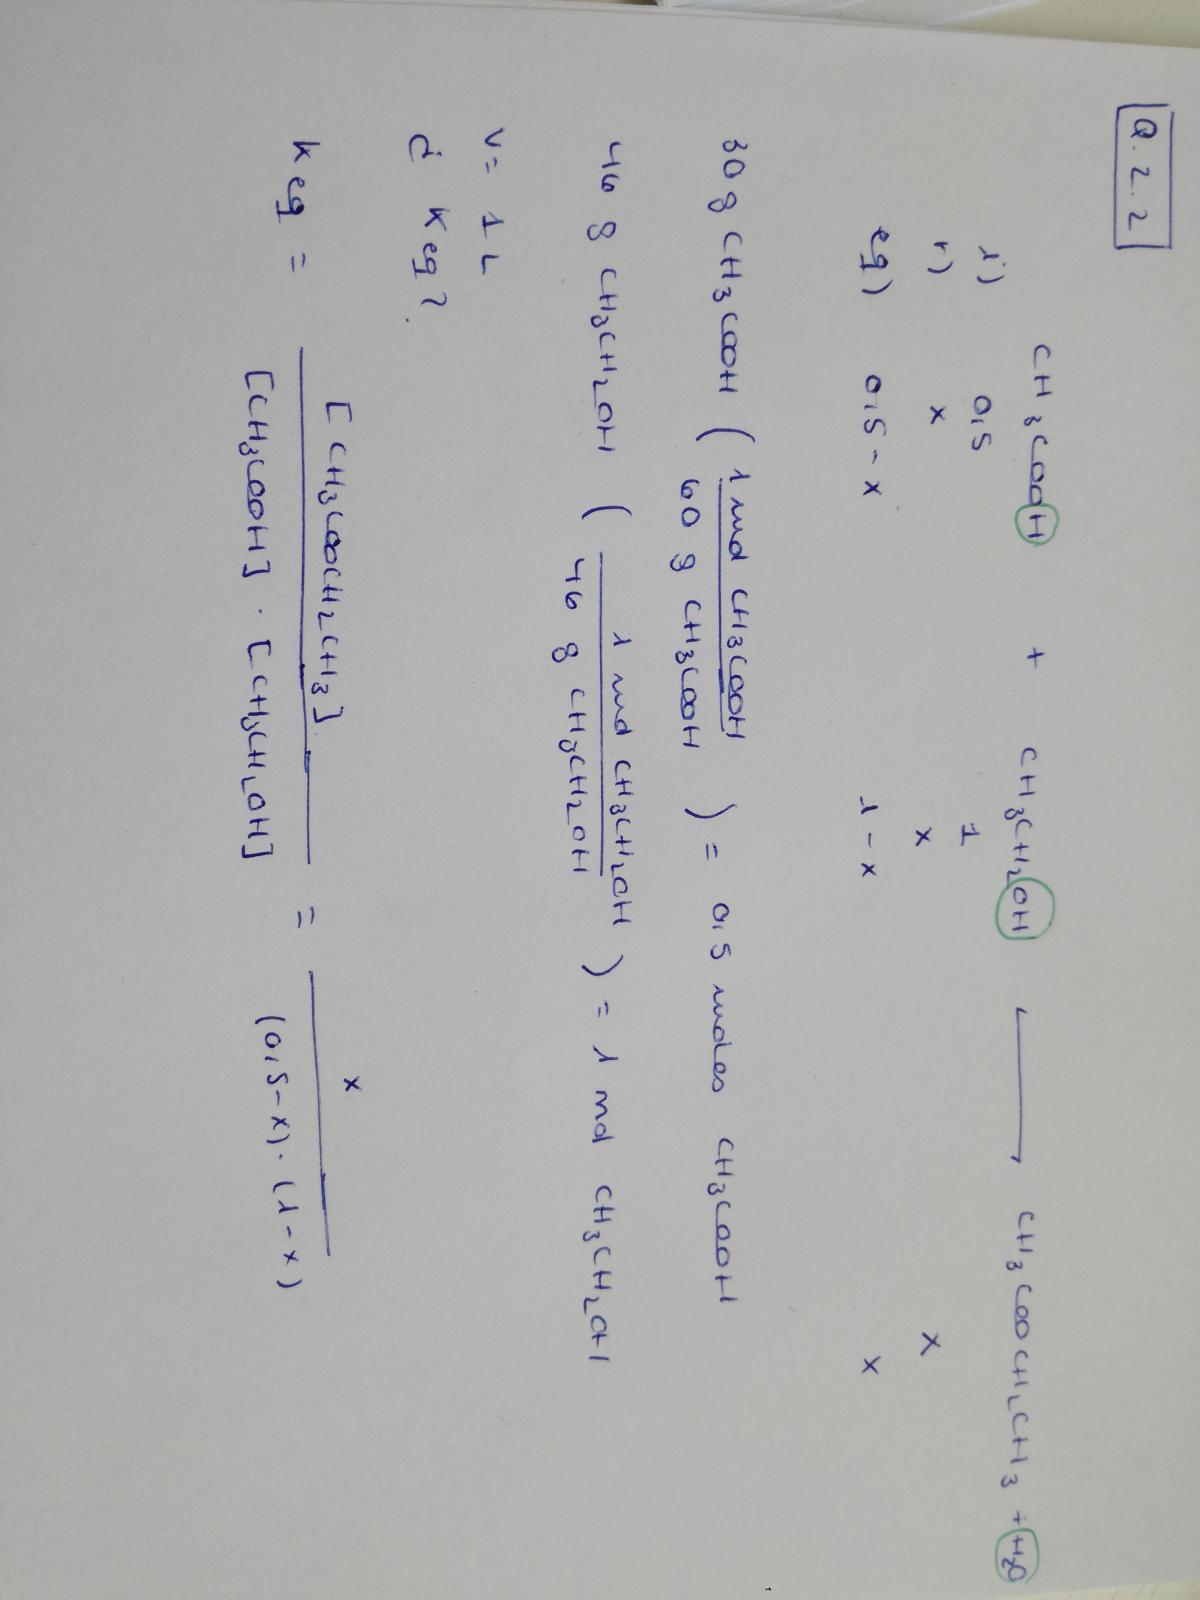 Q.2.2
CH3COOH + CH3CH2OH ⟶ CH3COOCH2CH3 + H2O
i) 0,5 1
r) x x x
eq) 0,5-x 1-x x
30 g CH3COOH (1 mol CH3COOH / 60 g CH3COOH) = 0,5 moles CH3COOH
46 g CH3CH2OH (1 mol CH3CH2OH / 46 g CH3CH2OH) = 1 mol CH3CH2OH
V= 1 L
¿ Keq?
Keq = [CH3COOCH2CH3] / [CH3COOH] · [CH3CH2OH] = x / (0,5-x) · (1-x)